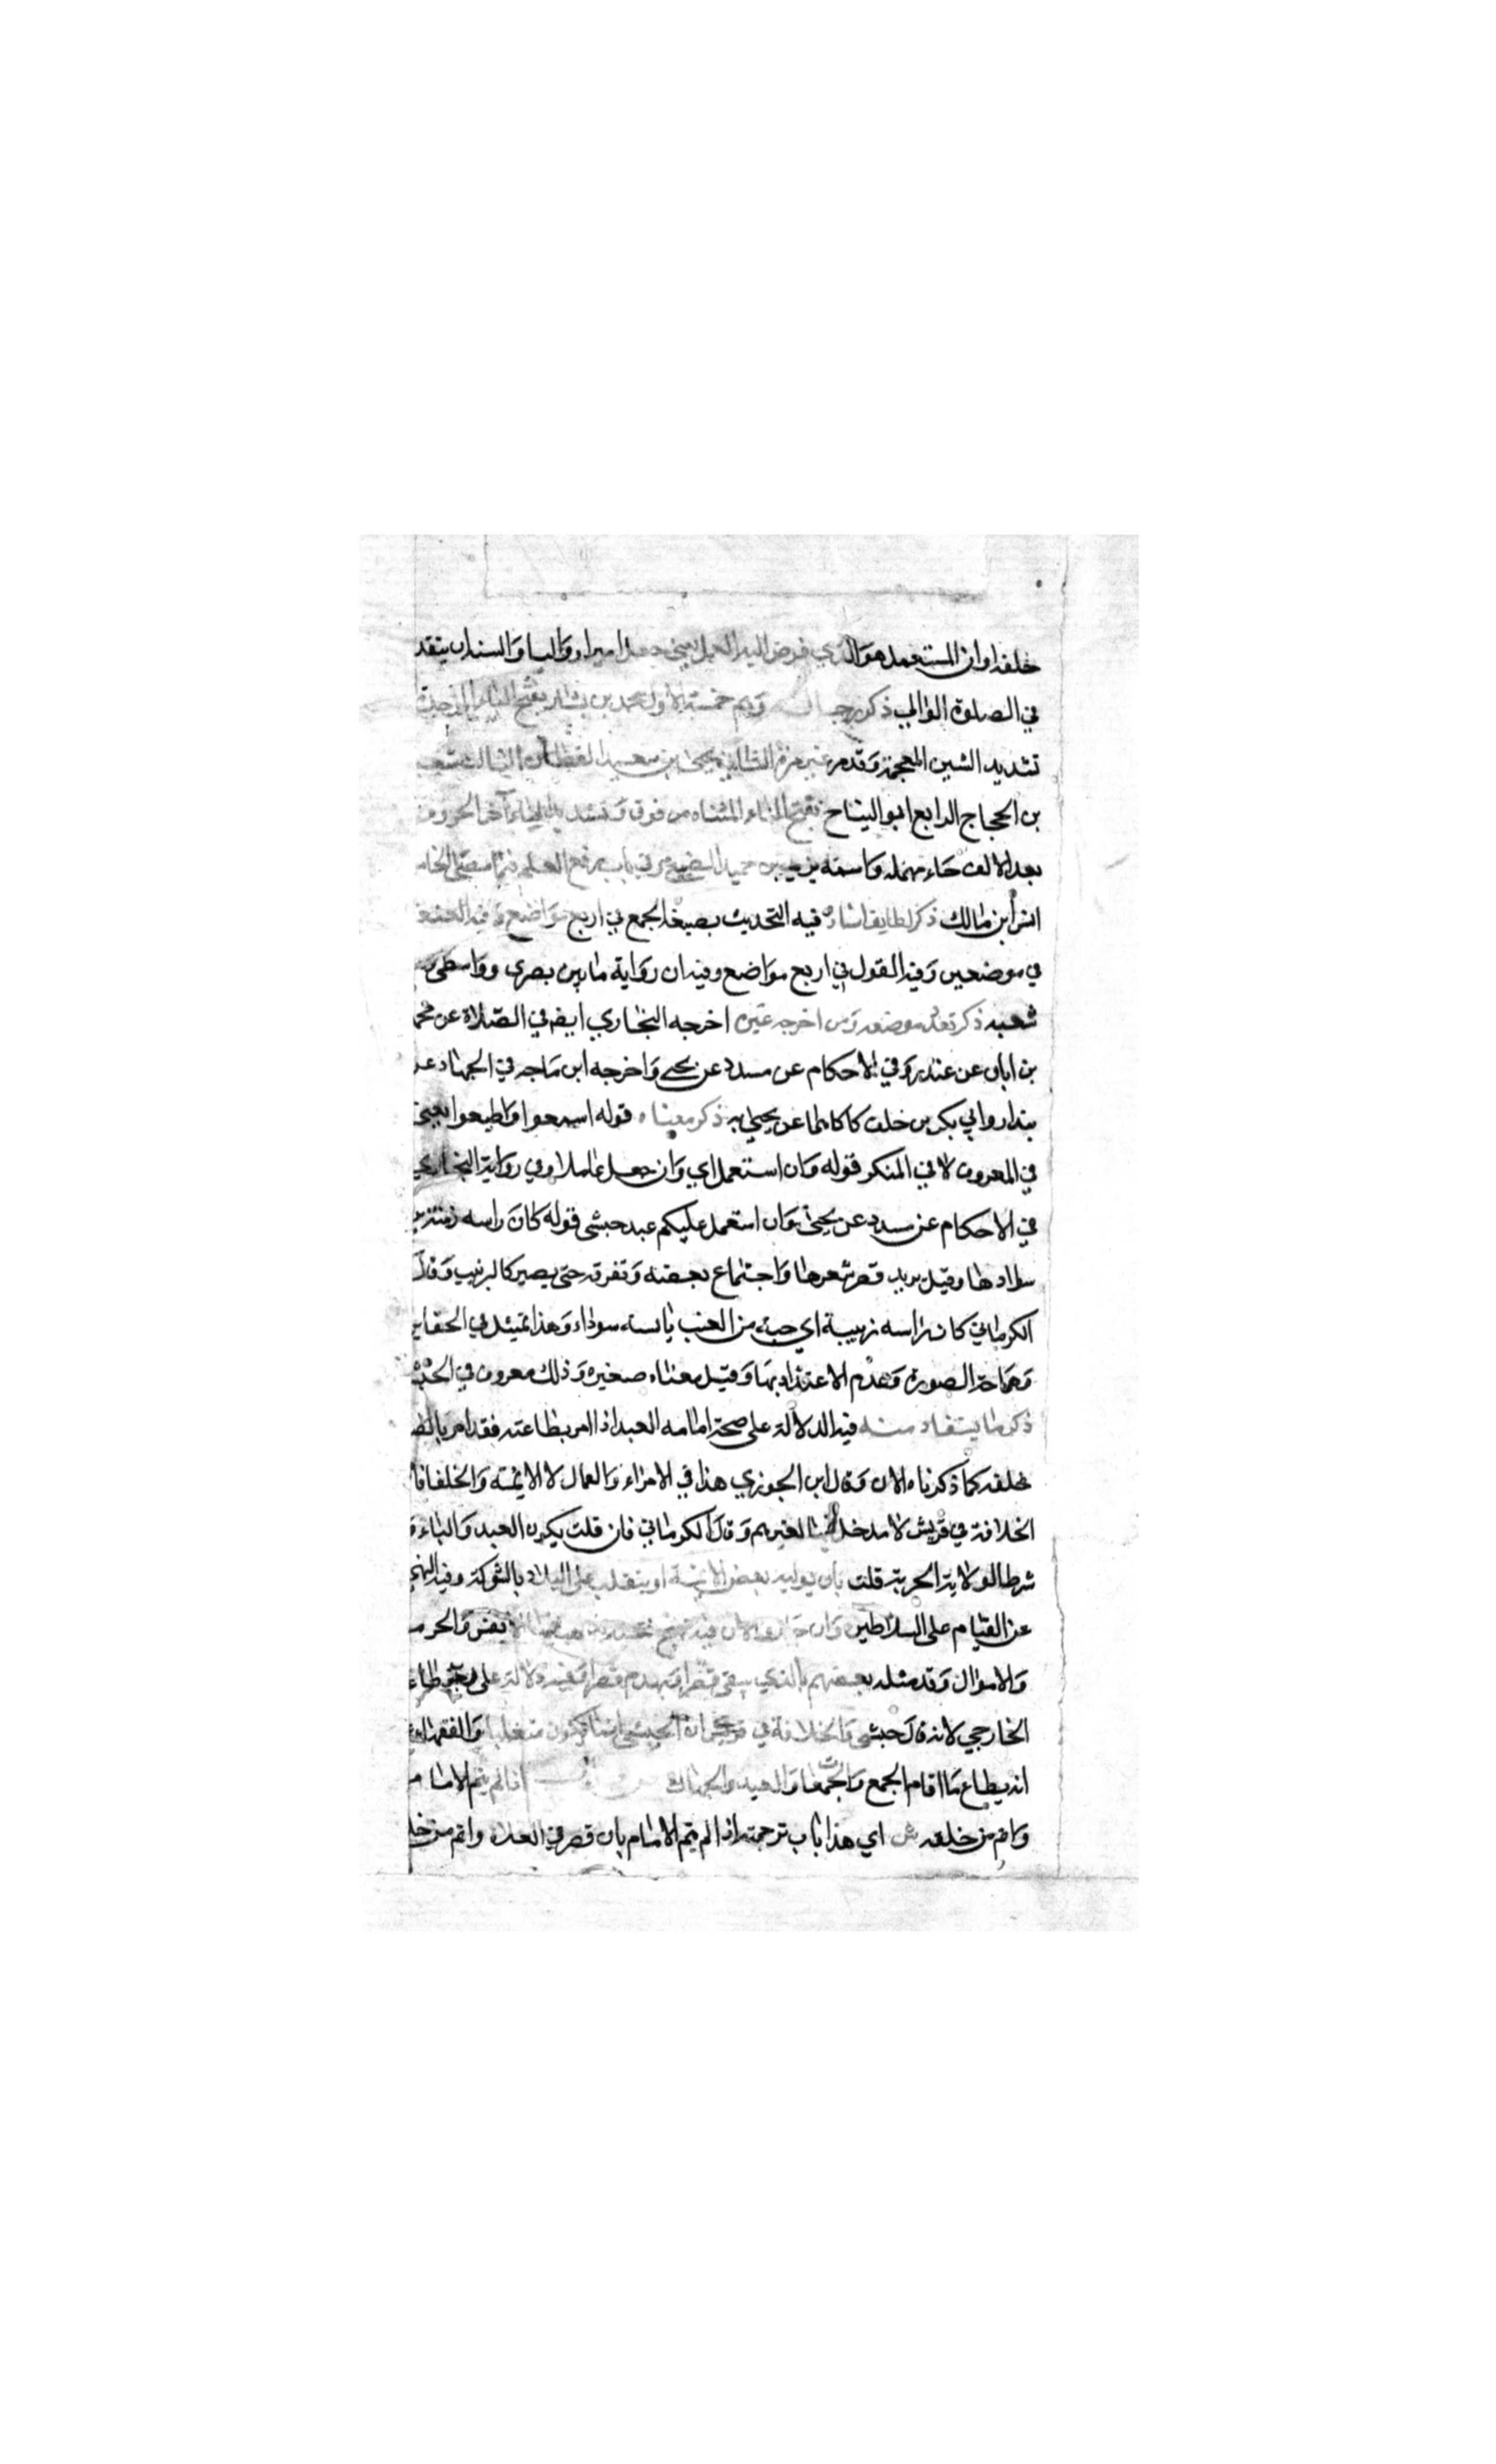 خلفه او ان المستعمل هو الذي فوض اليه العمل يعني جعل اميرا او واليا والسنة ان يتقد
في الصلوة الوالي ذكر رجاله وهم خمسة الاول محمد بن بشار بفتح الباء الموحدة
تشديد الشين المعجمة وقد مر غير مرة الثاني يحيى بن سعيد القطان الثالث شعبـ
بن الحجاج الرابع ابو التياح بفتح التاء المثناه من فوق وتشديد الياء آخر الحروف
بعد الالف حاء مهملة واسمه يزيد بن حميد الضبعي مر في باب رفع العلم فيما مضى الخا
انس ابن مالك ذكر لطايف اسناده فيه التحديث بصيغة الجمع في اربع مواضع وفيه العنعنـ
في موضعين وفيه القول في اربع مواضع وفيه ان رواية ما بين بصري وواسطي و
شعبه ذكر تعدد موضعه ومن اخرجه غيره اخرجه البخاري ايضا في الصلاة عن محمـ
بن ابان عن غندر وفي الاحكام عن مسدد عن يحيى واخرجه ابن ماجه في الجهاد عن
بندار وابي بكر بن خلف كلاهما عن يحيى به ذكر معناه قوله اسمعوا واطيعوا يعني
في المعروف لا في المنكر قوله وان استعمل اي وان جعل عاملا وفي رواية البخاري
في الاحكام عن مسدد عن يحيى وان استعمل عليكم عبد حبشي قوله كان راسه زبيبة
سوادها وقيل يريد قصر شعرها واجتماع بعضه وتفرقه حتى يصير كالزبيب وقال
الكرماني كان راسه زبيبة اي حبة من العنب يابسة سوداء وهذا تمثيل في الحقاره
وسماجة الصورة وعدم الاعتداد بها وقيل معناه صغيره وذلك معروف في الحبشـ
ذكر ما يستفاد منه فيه الدلالة على صحة امامه العبد اذا امر بطاعته فقد امر بالصـ
خلفه كما ذكرناه الان وقال ابن الجوزي هذا في الامراء والعمال لا الائمة والخلفا فا
الخلافة في قريش لا مدخل فيها لغيرهم وقال الكرماني فان قلت يكون العبد واليا و
شرط الولاية الحرية قلت بان يوليه بعض الائمة او يتغلب على البلاد بالشوكة وفيه النهي
عن القيام على السلاطين وان جاروا لان فيه تهييج فتنة تذهب بها الانفس والحرمـ
والاموال وقد مثله بعضهم بالذي يبني قصرا ويهدم مصرا وفيه دلالة على وجوب طاعـ
الخارجي لانه قال حبشي والخلافة في قريش فان الحبشي انما يكون متغلبا والفقهاء
انه يطاع ما اقام الجمع والجماعات والعيد والجهاد اذا لم يتم الامام
واتم من خلفه ش اي هذا باب ترجمته اذا لم يتم الامام بان قصر في الصلاة واتم من خلـ